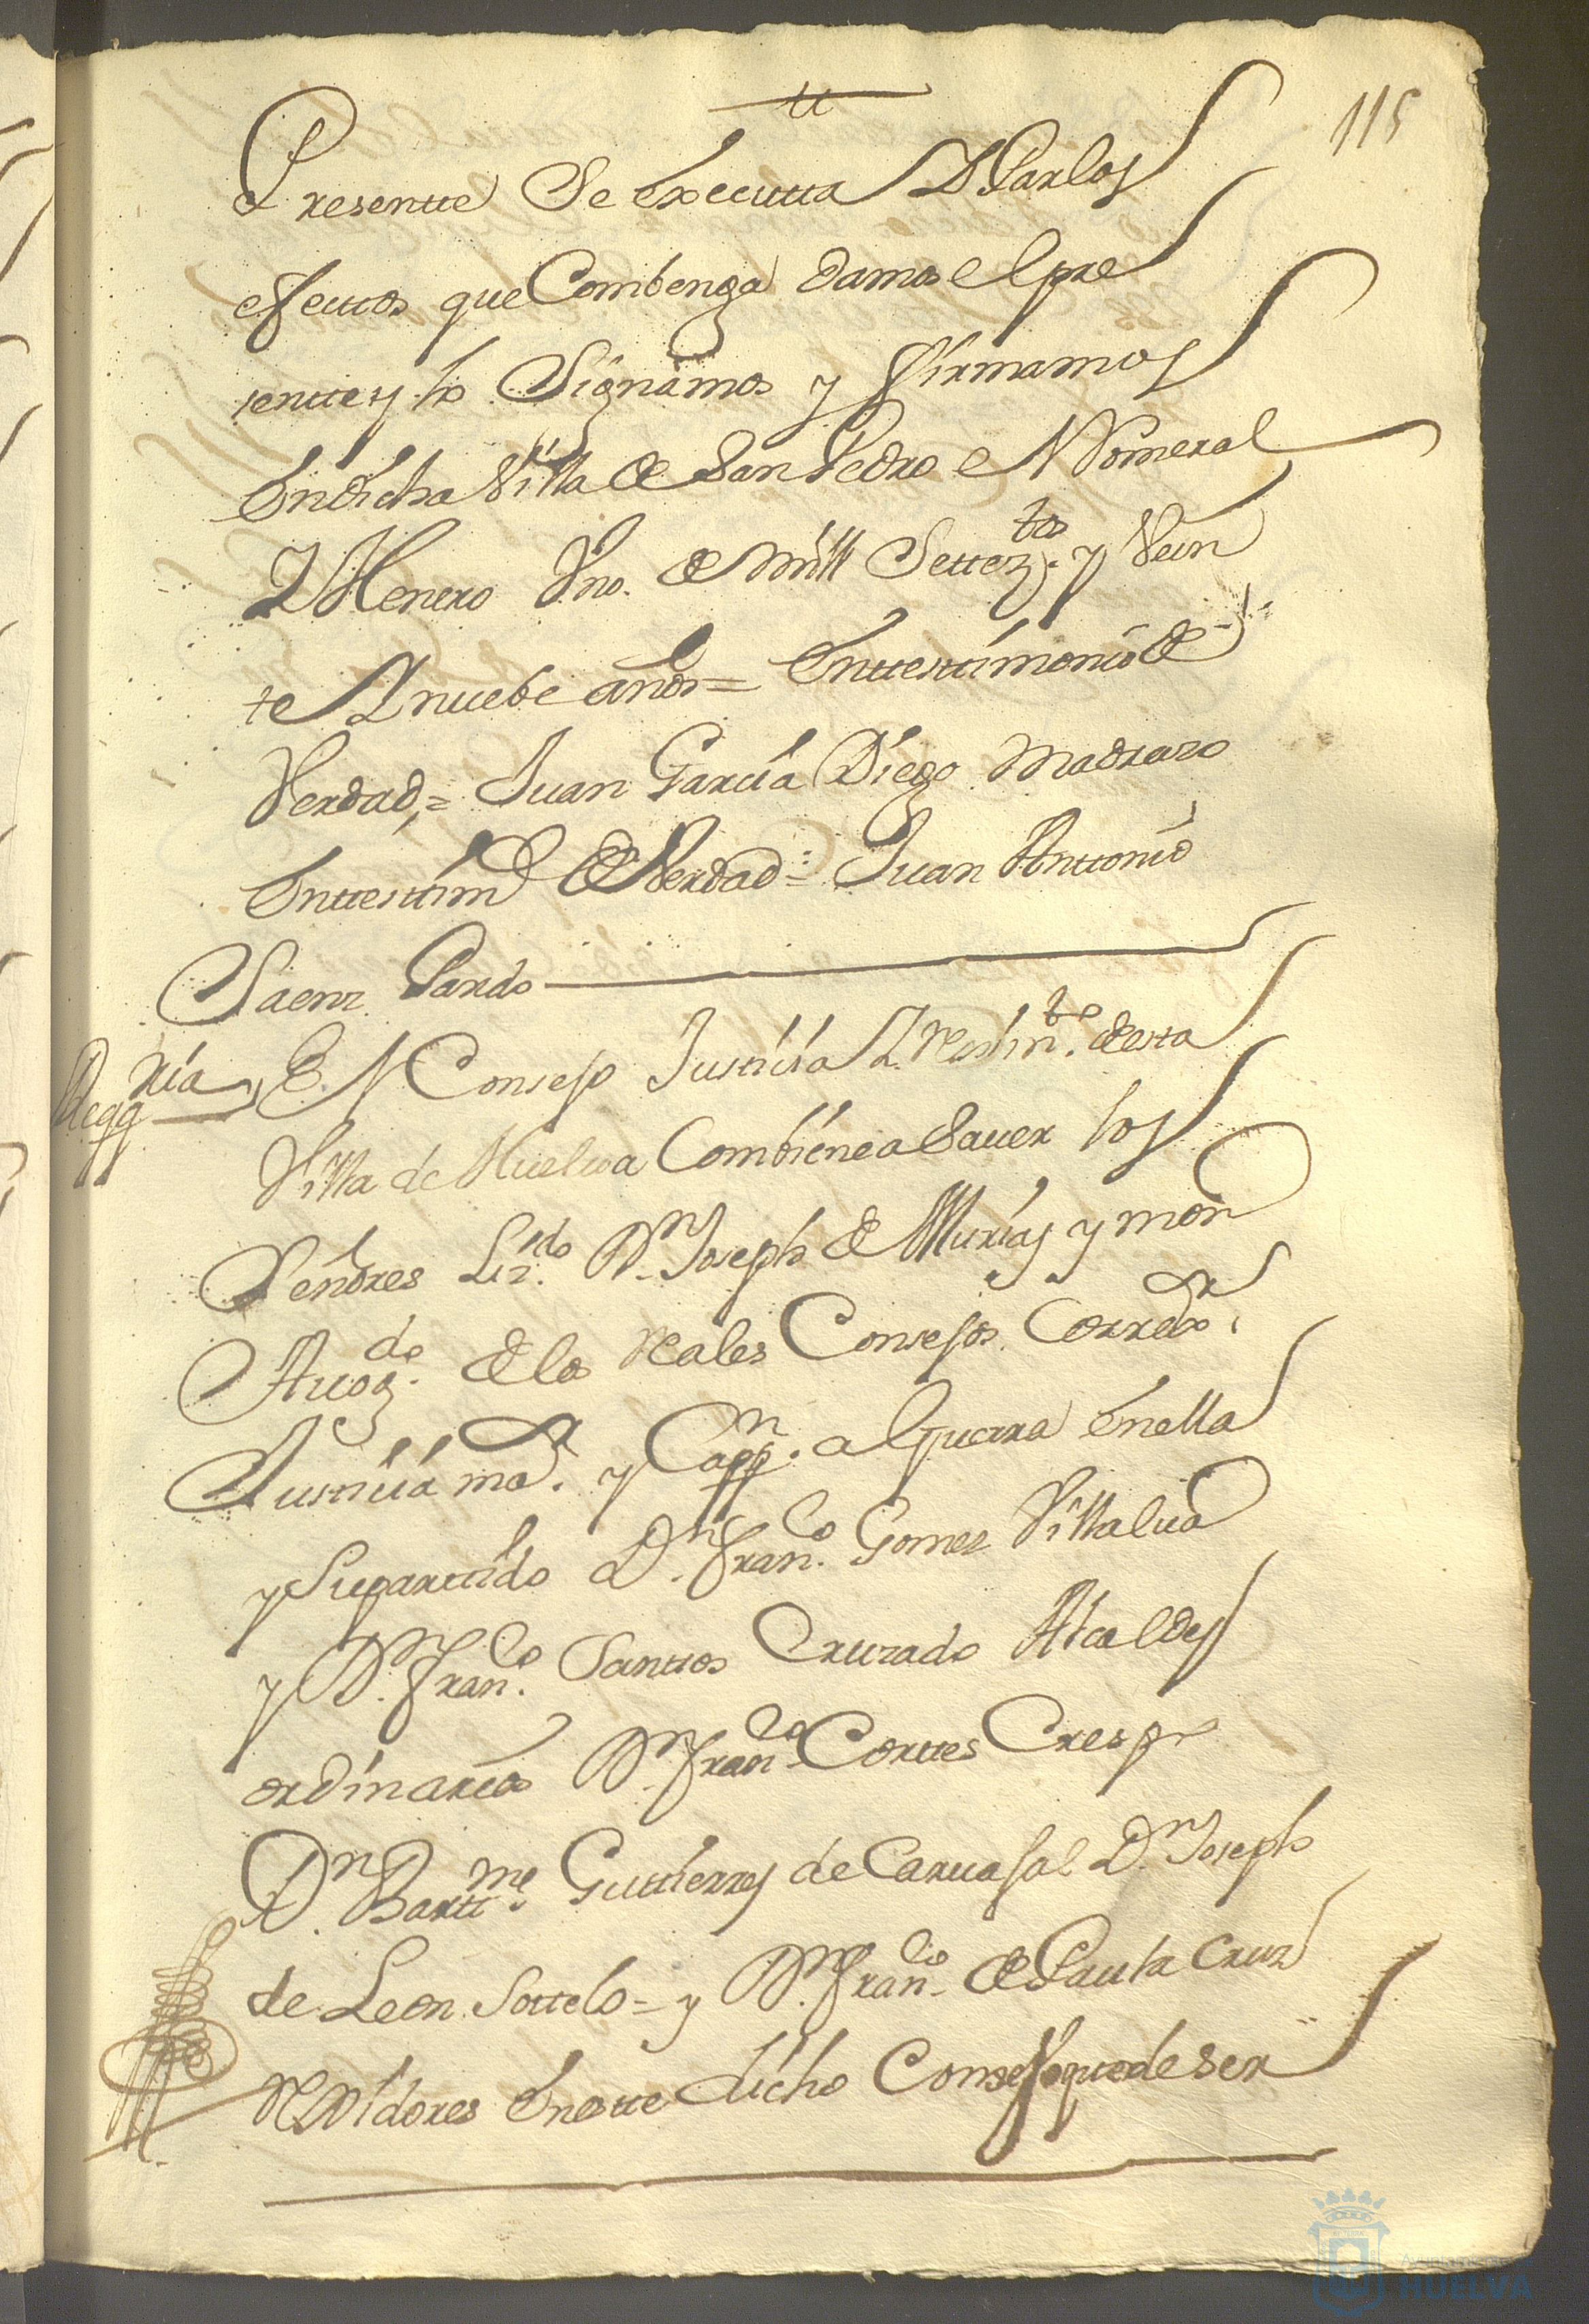 115
Presentte Se Executta Y Para los
efecttos que Combenga damos el pre
sentte y lo Signamos y firmamos
En dicha Villa de San Pedro el Romeral
Y Henero Vno. de mill Settez.tos y Vein
te Y nuebe años = En ttesttimonio de
Verdad = Juan Garcia Diego Madrazo
En ttesttim.o de Verdad = Juan Anttonio
Saenz Pardo
Reqq.ria El Consejo Justticia Y Rejim.to desta
Villa de Huelva Combiene a Saver los
Señores Liz.do D.n Joseph de Murias y mon
Avog.do de los Reales Consejos Corred.or
Justicia ma.or y Capp.n a Guerra En ella
y Su parttido D.n Fran.co Gomez Villalva
y D.n Fran.co Santtos Cruzado Alcaldes
ordinarios D.n Fran.co Corttes Crespo
D.n Bartt.me Guttierres de Carvajal D.n Joseph
de Leon Sottelo = y D.n Fran.co de Paula Cruz
Rexidores En estte dicho Consejo que de ser
HUELVA